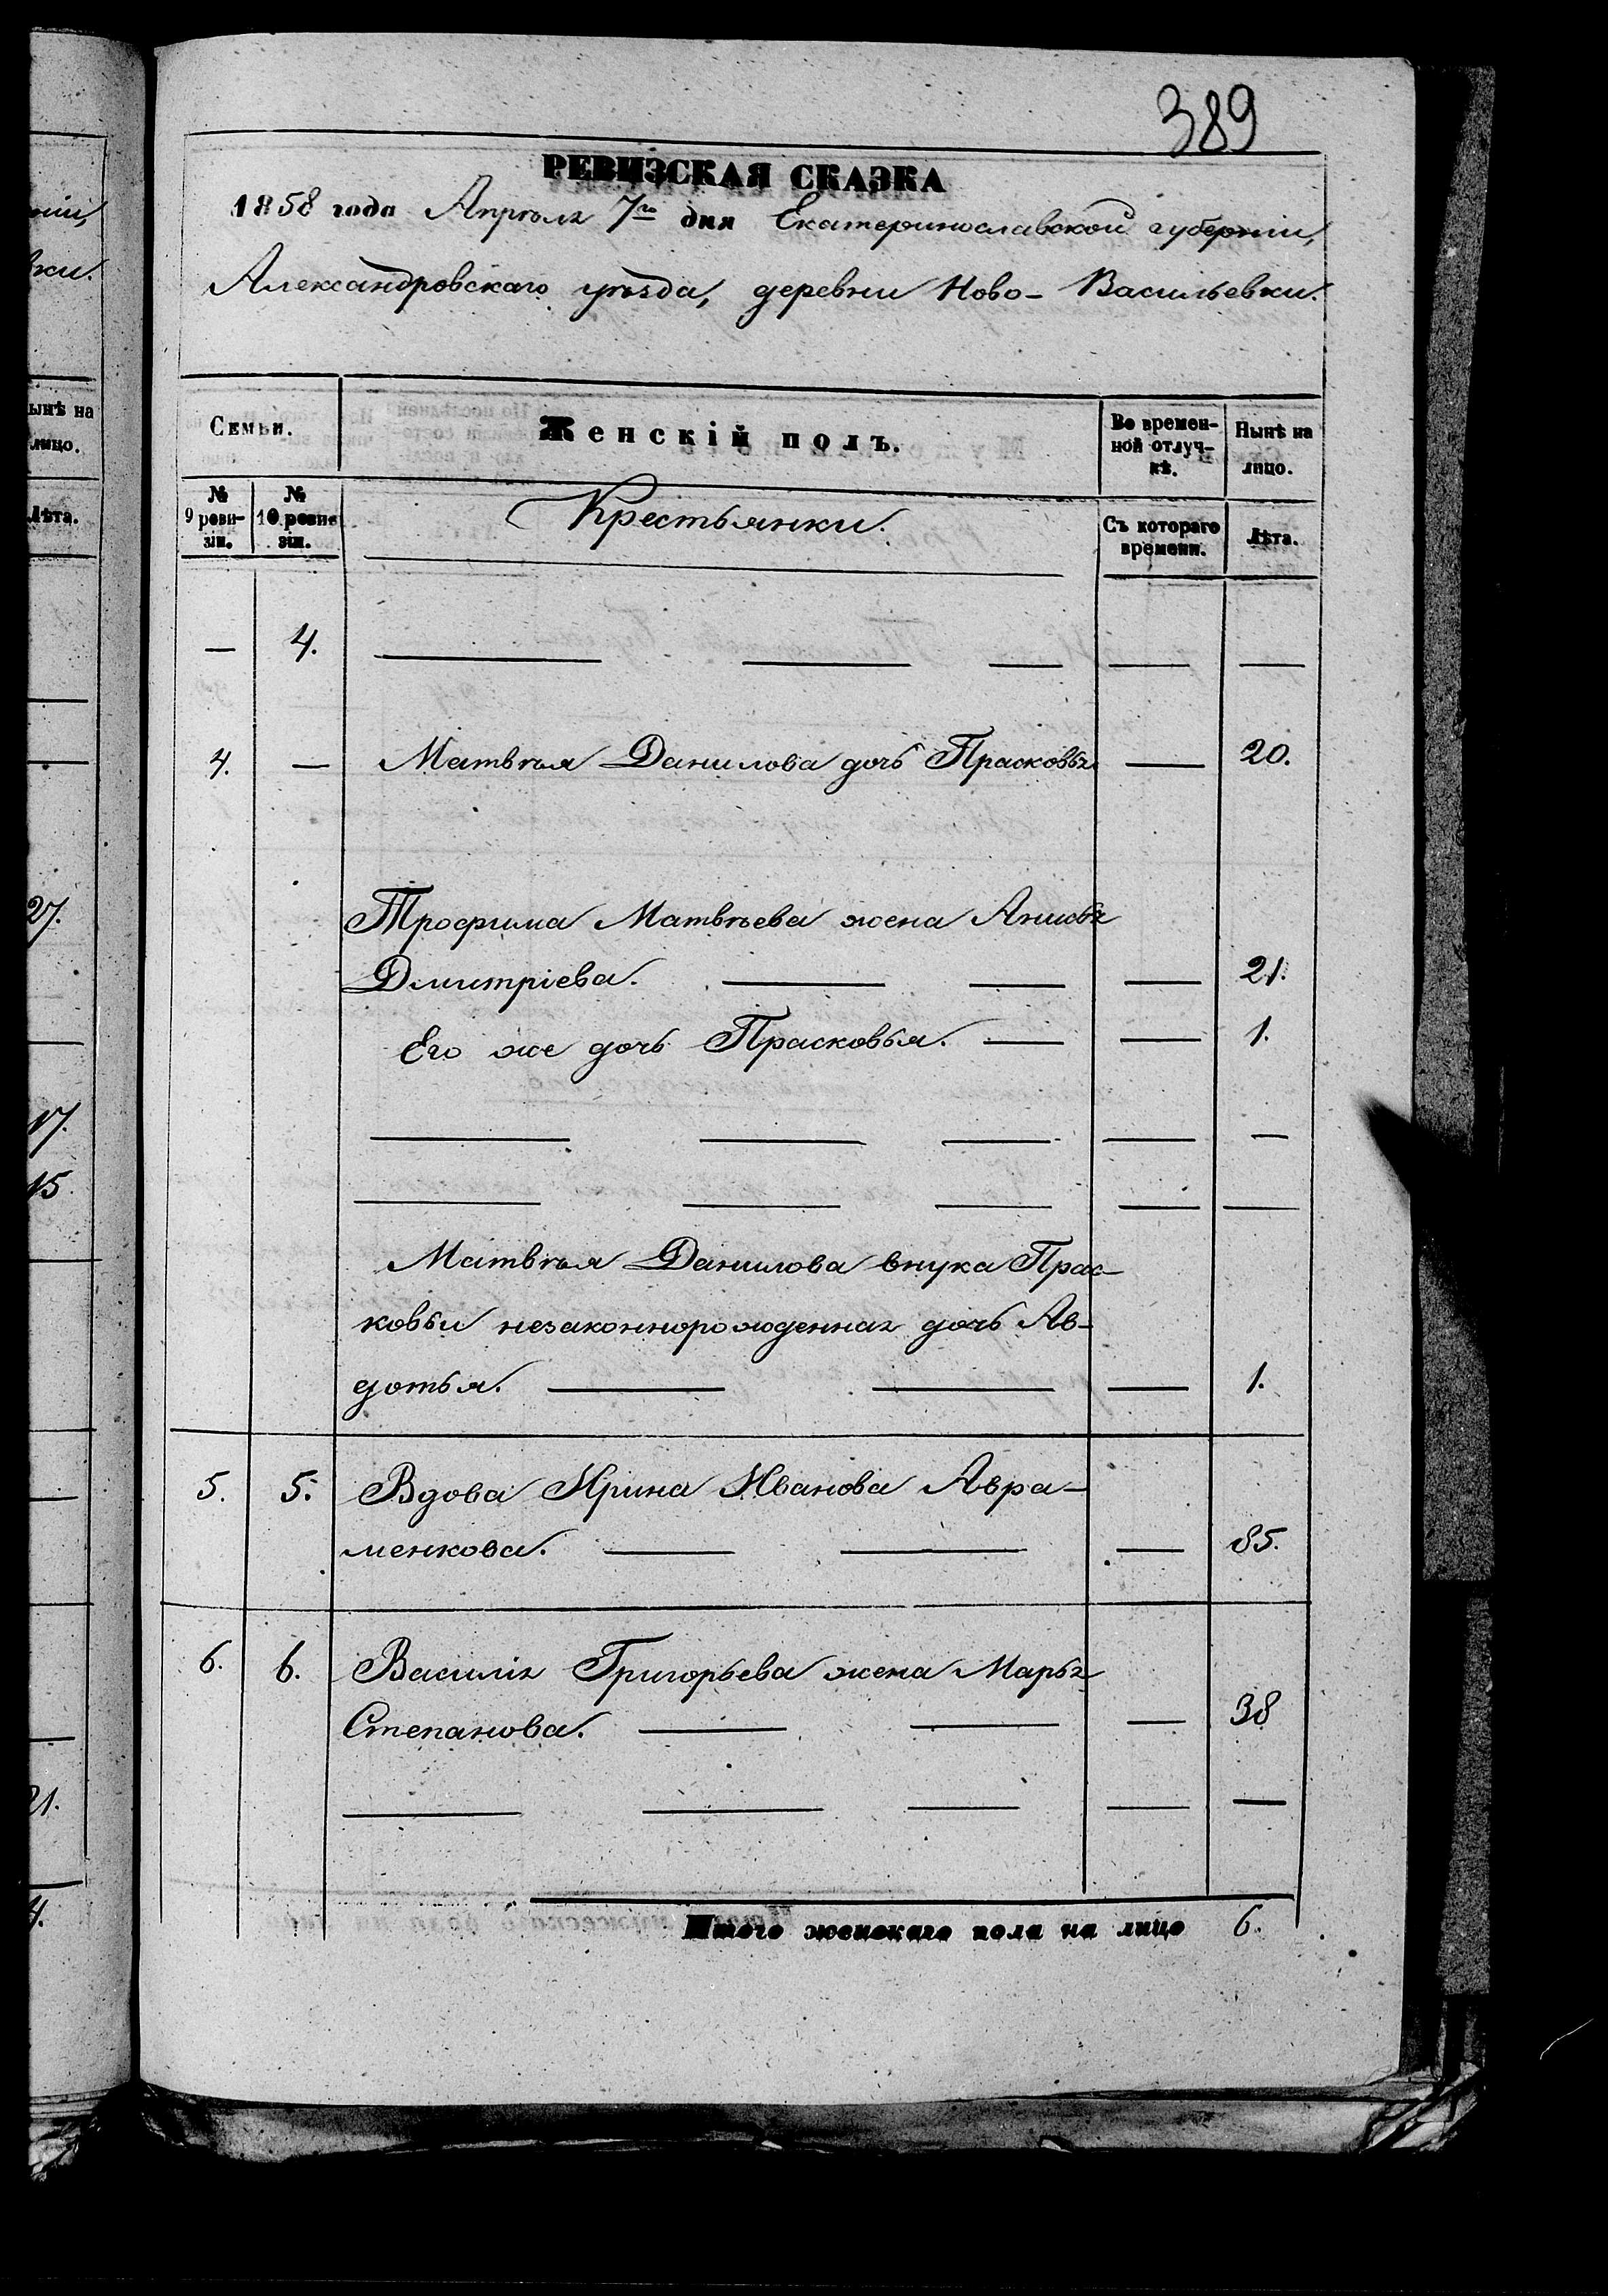 389
РЕВИЗСКАЯ СКАЗКА
1858 года Апрѣля 7го дня Екатеринославской губерніи,
Александровскаго уѣзда, деревни Ново-Васильевки.
ынѣ на
лицо.
Лѣта.
27.
17.
15.
21.
Семьи.
Женскій полъ.
Во времен-
ной отлуч-
кѣ.
Нынѣ на
лицо.
№
9 реви-
зіи.
№
10 ревиз-
зіи.
Крестьянки.
Съ котораго
времени.
Лѣта.
— 4. — — — — —
4. — Матвѣя Данилова дочь Прасковья — 20.
Трофима Матвѣева жена Анисья
Дмитріева. — — — 21.
Его же дочь Прасковья. — — 1.
— — — — —
— — — — —
Матвѣя Данилова внука Прас-
ковьи незаконнорожденная дочь Ав-
дотья. — — — 1.
5. 5. Вдова Ирина Иванова Авра-
менкова. — — — 85.
6. 6. Василія Григорьева жена Марья
Степанова. — — — 38
— — — — —
Итого женскаго пола на лицо 6.